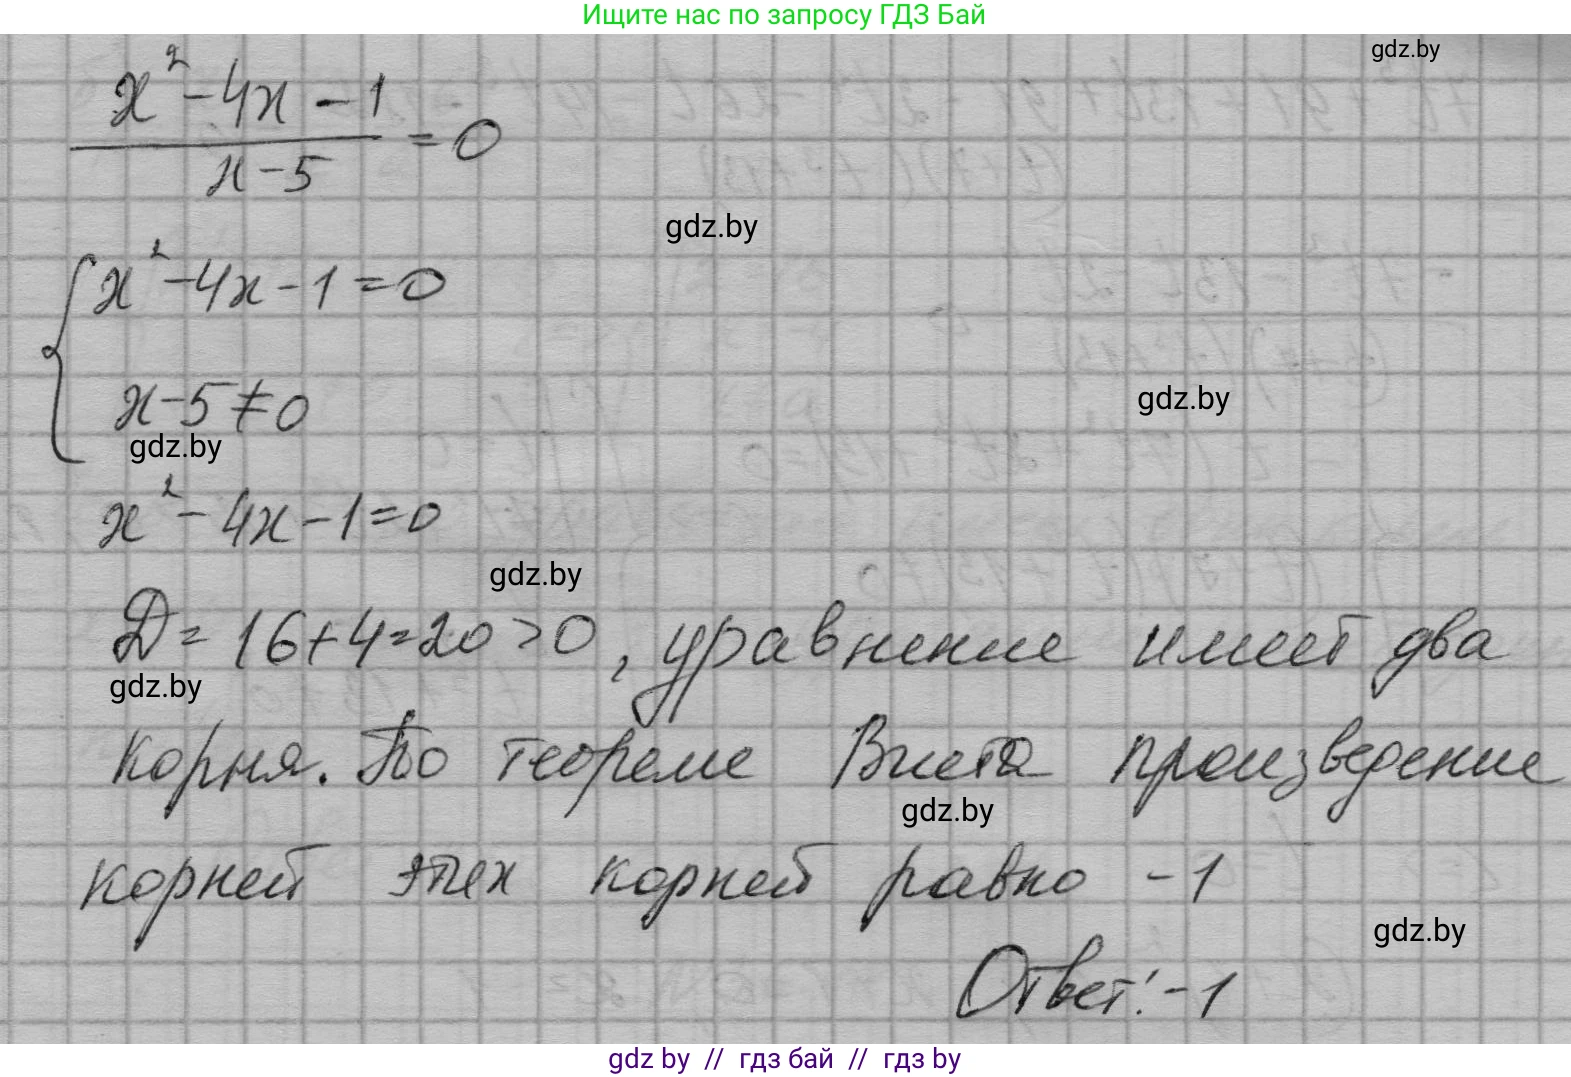 Ищите нас по запросу ГДЗ Бай
gdz.by
x² - 4x - 1
——— = 0
x - 5
gdz.by
{ x² - 4x - 1 = 0
x - 5 ≠ 0
gdz.by
gdz.by
x² - 4x - 1 = 0
gdz.by
Д = 16 + 4 = 20 > 0, уравнение имеет два
gdz.by
корня. По теореме Виета произведение
gdz.by
корней этих корней равно -1
gdz.by
Ответ: -1
gdz by // гдз бай // гдз by